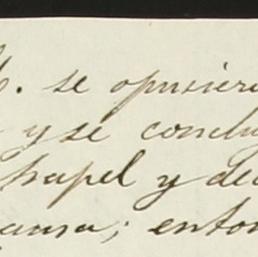 se opusiero
y se conclu
papel y de
causa; enton